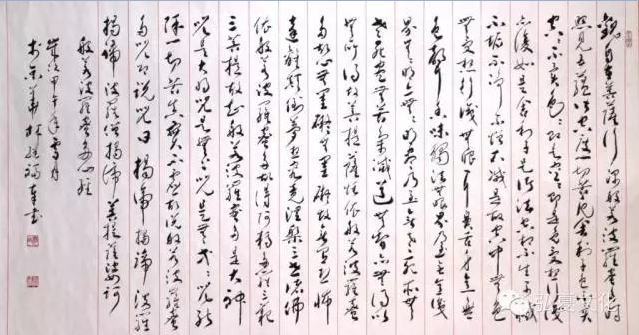 觀自在菩薩行深般若波羅蜜多時
照見五蘊皆空度一切苦厄舍利子色不異
空空不異色色即是空空即是色受想行識
亦復如是舍利子是諸法空相不生不滅
不垢不淨不增不減是故空中無色
無受想行識無眼耳鼻舌身意無
色聲香味觸法無眼界乃至無意識
界無無明亦無無明盡乃至無老死亦無
老死盡無苦集滅道無智亦無得以
無所得故菩提薩埵依般若波羅蜜
多故心無罣礙無罣礙故無有恐怖
遠離顛倒夢想究竟涅槃三世諸佛
依般若波羅蜜多故得阿耨多羅三藐
三菩提故知般若波羅蜜多是大神
咒是大明咒是無上咒是無等等咒能
除一切苦真實不虛故說般若波羅蜜
多咒即說咒曰揭諦揭諦波羅
揭諦波羅僧揭諦菩提薩婆訶
般若波羅蜜多心經
歲次甲午年月
於京華林書
弘夏文化